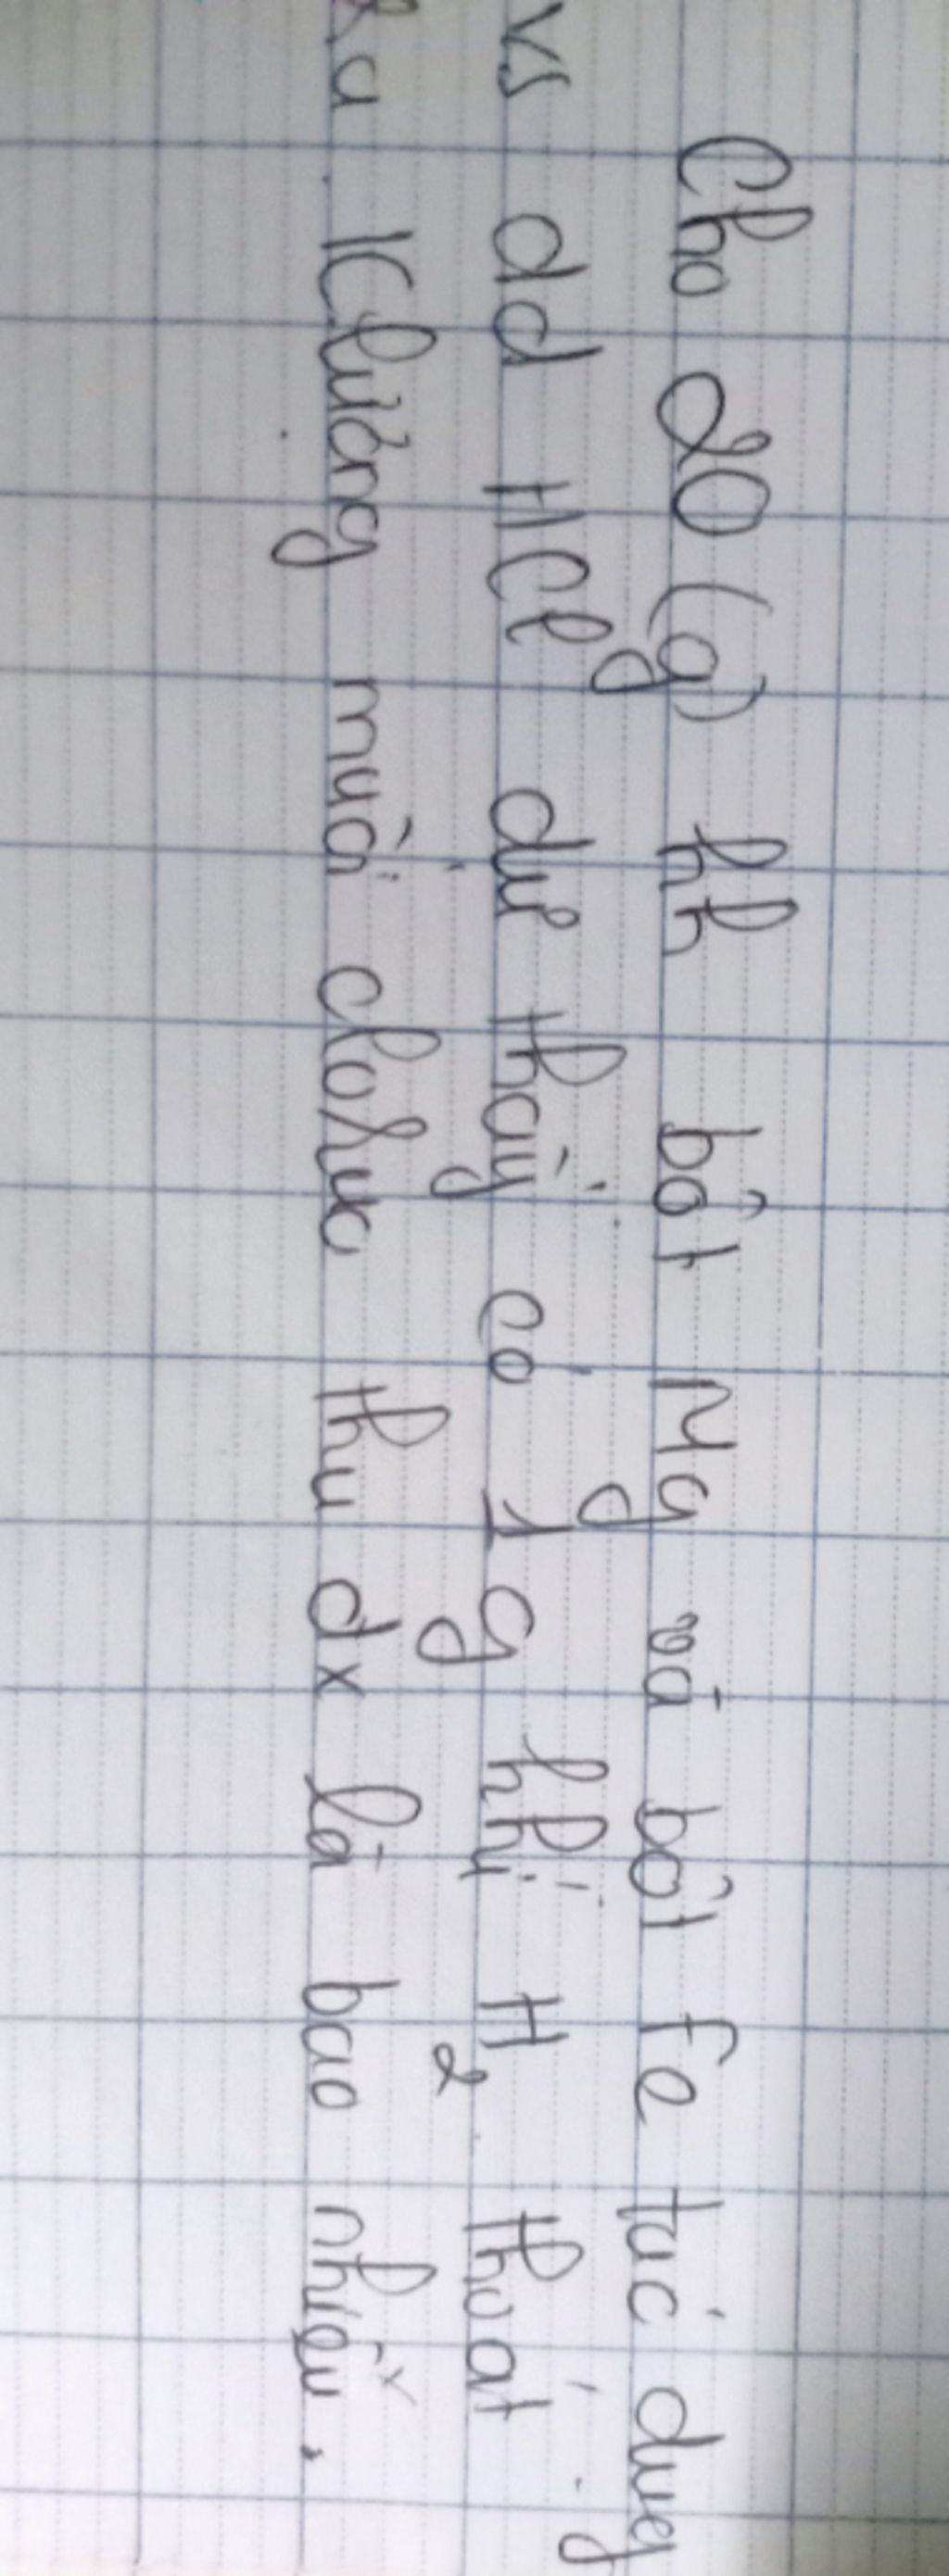 Cho 20 (g) hh bột Mg và bột Fe tác dụng
vs dd HCl dư thấy có 1g khí H2 thoát
ra. Klượng muối clorua thu dx là bao nhiêu.